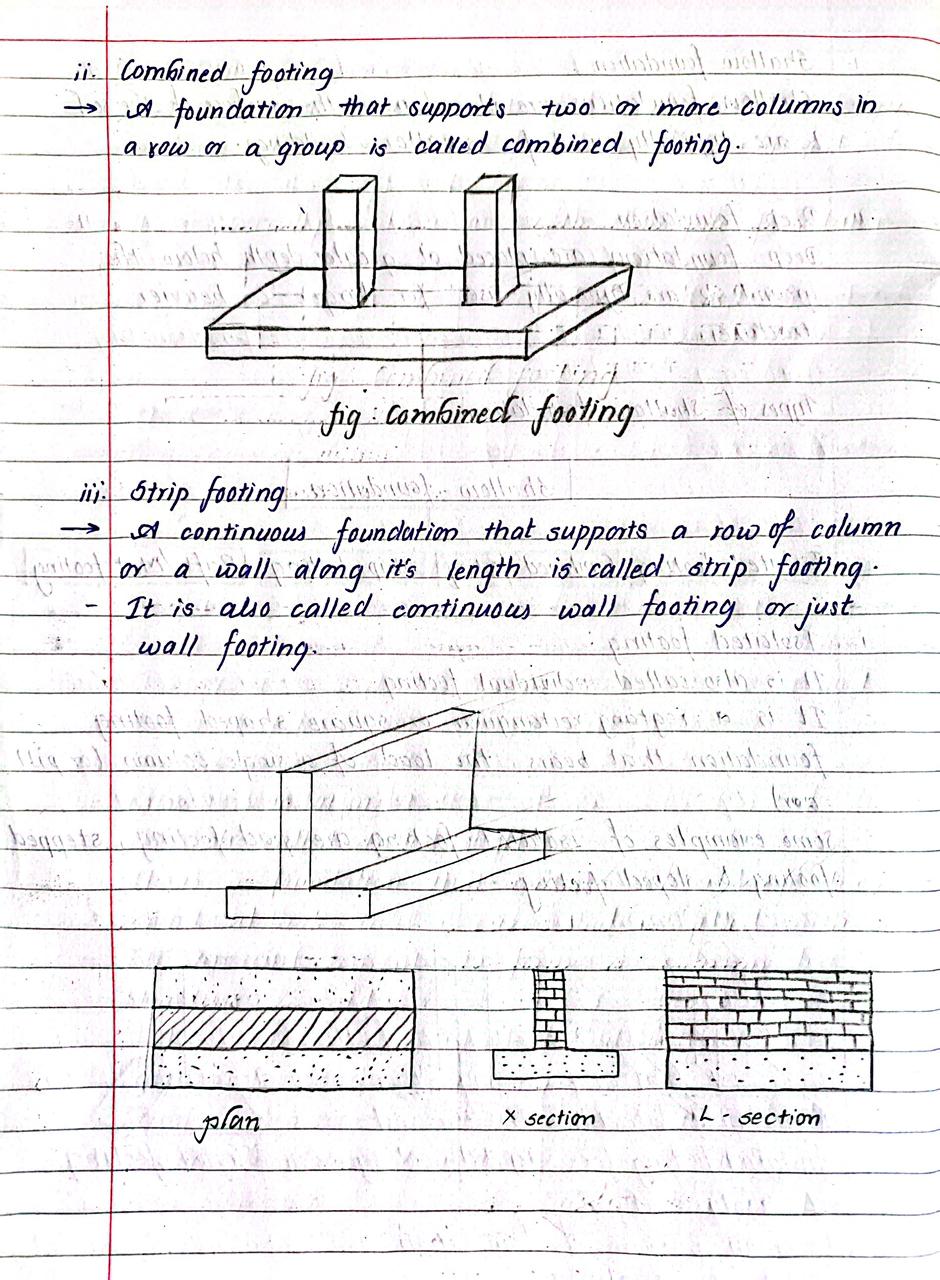 ii. Combined footing
→ A foundation that supports two or more columns in
a row or a group is called combined footing.
fig: Combined footing
iii. Strip footing
→ A continuous foundation that supports a row of column
or a wall along it's length is called strip footing.
- It is also called continuous wall footing or just
wall footing.
plan
X section
L - section